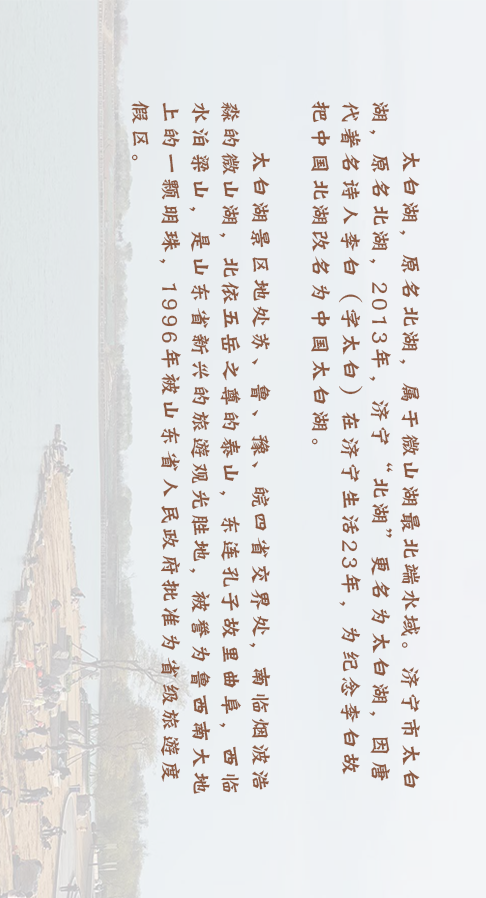 太白湖，原名北湖，属于微山湖最北端水域。济宁市太白
湖，原名北湖，2013年，济宁“北湖”更名为太白湖，因唐
代著名诗人李白（字太白）在济宁生活23年，为纪念李白故
把中国北湖改名为中国太白湖。
太白湖景区地处苏、鲁、豫、皖四省交界处，南临烟波浩
淼的微山湖，北依五岳之尊的泰山，东连孔子故里曲阜，西临
水泊梁山，是山东省新兴的旅游观光胜地，被誉为鲁西南大地
上的一颗明珠，1996年被山东省人民政府批准为省级旅游度
假区。